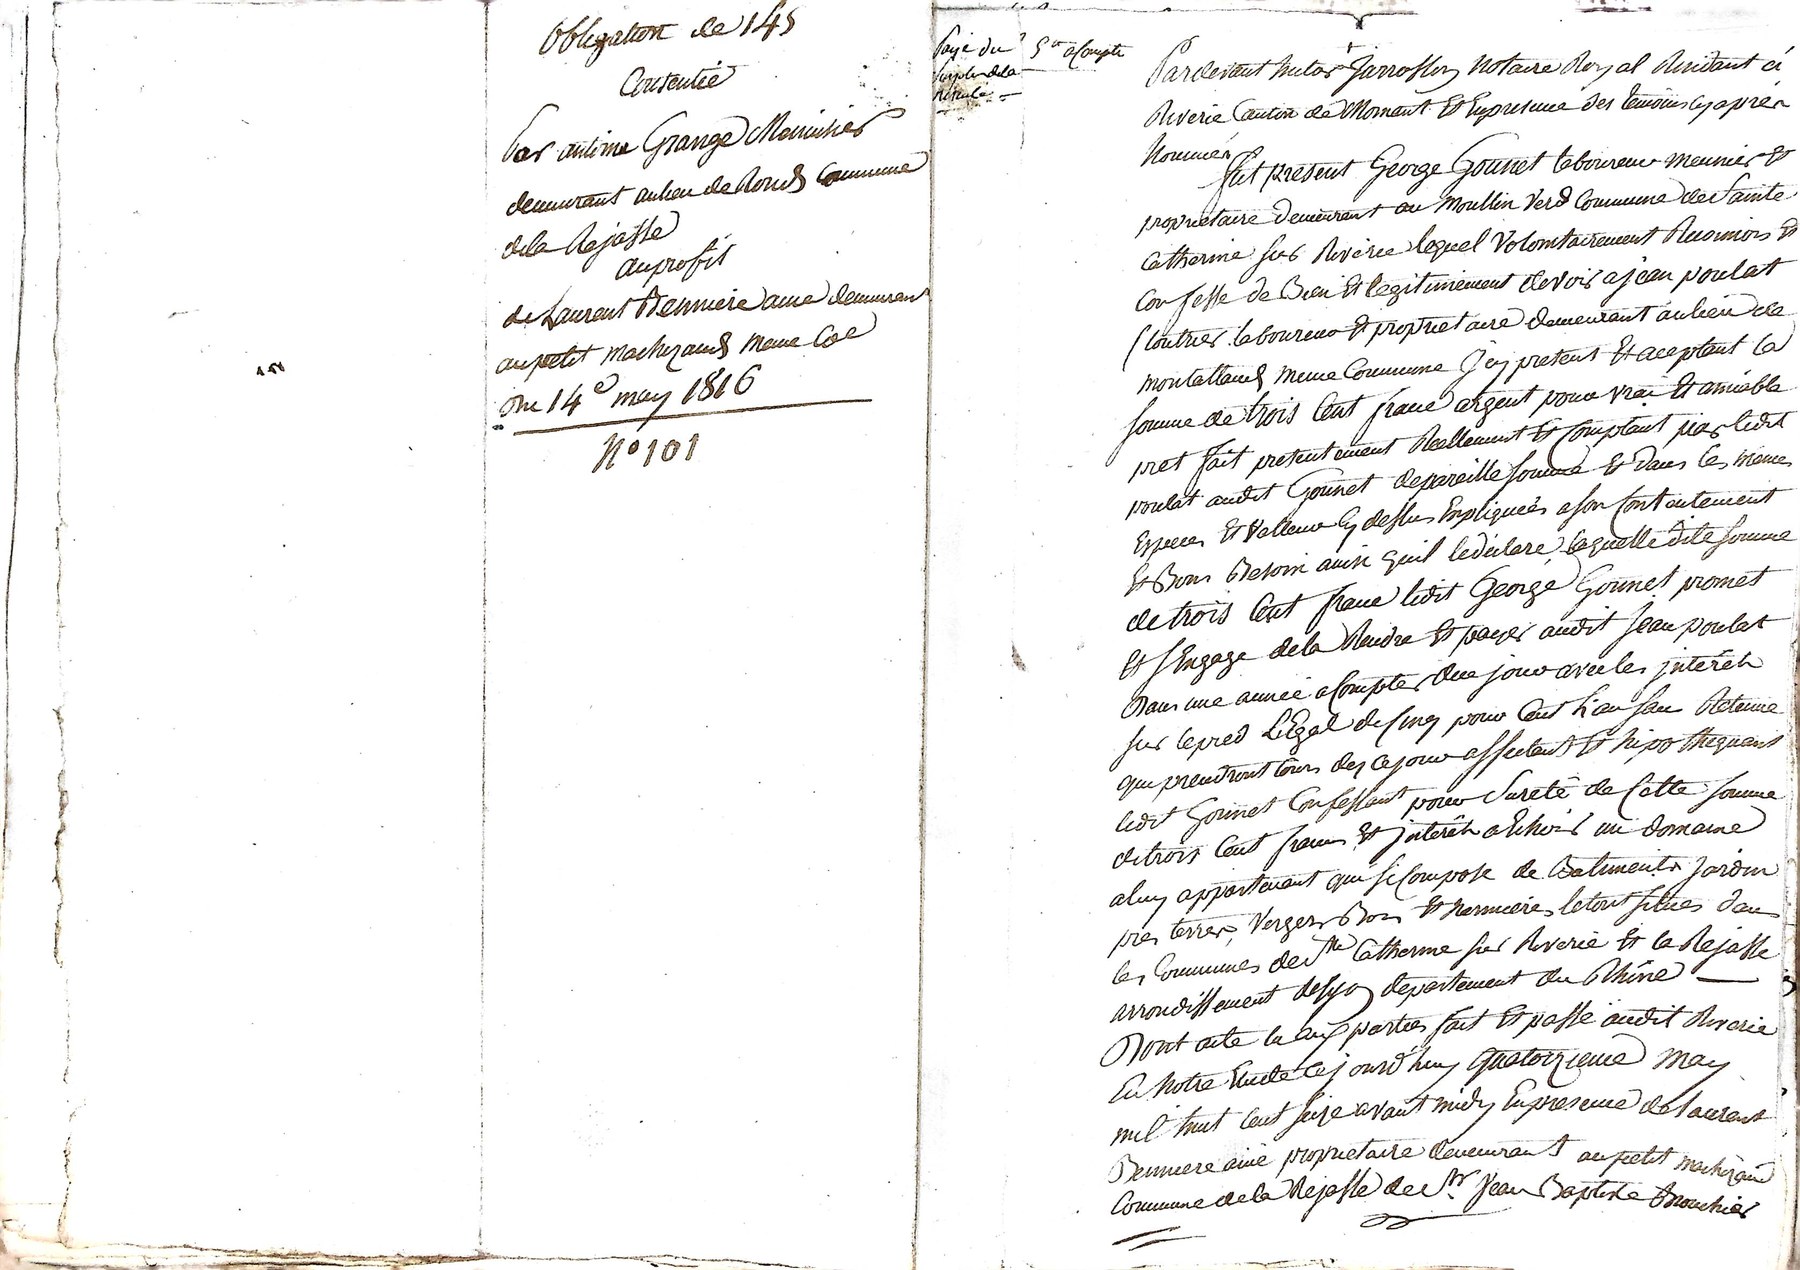 Obligation de 145
Consentie
Par antoine Grange Menuisier
demeurant au lieu de Rond Commune
de la Rejasse
au profit
de Laurent Bennière ainé demeurant
au petit Machizaud meme Coe
Du 14e may 1816
No 101
Payé du 5me a Compte
Surplus de la
Pardevant hutor Jarrosson Notaire Royal Residant à
Riverie Canton de Mornant Et En presence des temoins cy après
Nommés
fut present George Gounet laboureur meunier Et
proprietaire Demeurant au Moullin Verd Commune de Sainte
Catherine sur Riverie lequel Volontairement Reconnois Et
Confesse de Bien Et legitimement devoir a jean poulat
Cloutrier laboureur Et proprietaire demeurant au lieu de
montalland meme Commune jcy present Et aceptant la
somme de trois Cent franc argent pour vrai Et amiable
pret fait presentement Reellement Et Comptant par ledit
poulat audit Gounet de pareille somme Et Dans les memes
Especes Et Valleur cy dessus Expliquées a son Contentement
Et Bon Besoin ainsi qu'il le declare, laquelle dite somme
de trois Cent franc ledit George Gounet promet
Et s'Engage de la Rendre Et payer audit jean poulat
Dans une année a Compter du jour avec les jnterêts
sur le pied légal de Cinq pour Cent l'an sans Retenue
qui prendront Cours des ce jour affectant Et hipothequant
ledit Gounet Confessant pour Sureté de Cette somme
de trois Cent francs Et jnterêts a Echoir un domaine
a luy appartenant qui se Compose de Batiments Jardin
pres terres, Vergers Bois Et hermieres le tout situés dans
les Communes de Ste Catherine sur Riverie Et la Rejasse
arrondissement de Lyon departement du Rhône —
Dont acte lu aux parties fait Et passé audit Riverie
En Notre Etude Ce jourd'huy quatorzieme May
mil huit Cent seize avant midy En presence de Laurent
Benniere ainé proprietaire demeurant au petit machizaud
Commune de la Rejasse de Sr. Jean Baptiste Brouchier